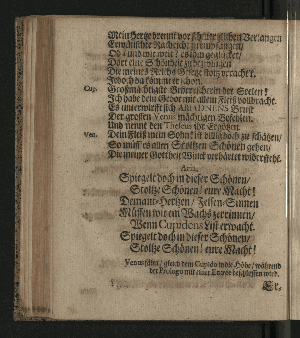 Mein Hertze brennt vor
Verlangen
Erwünschte Nachricht zu empfangen/
Ob und wie weit es ihm geglücket/
Dort eine Schönheit zu bezwingen
Die meines Reichs Gesetze stoltz veracht't.
Jedoch da kömmt er schon.
Cup. Großmächtigste Beherrscherin der Seelen!
Ich habe dein Gebot mit allem Fleiß vollbracht.
Es unterwirfft sich Brust
Der grossen Venus mächtigen Befehlen,
Und nennt den Theseus ihr Ergötzen.
Ven. Dein Fleiß mein Sohn ist billig hoch zu schätzen/
So muß es allen Stoltzen Schönen gehen/
Die meiner Gottheit Winck verhärtet widersteht.
Aria.
Spiegelt doch in dieser Schönen/
Stoltze Schönen/ eure Macht!
Demant-Hertzen/ Felsen-Sinnen
Müssen wie ein Wachs zerrinnen/
Wenn Cupidens List erwacht.
Spiegelt doch in dieser Schönen/
Stoltze Schönen/ eure Macht!
Venus fähret/ gleich dem Cupido in die Höhe/ während
der Prologo mit einer Entrée beschlossen wird.
Er-